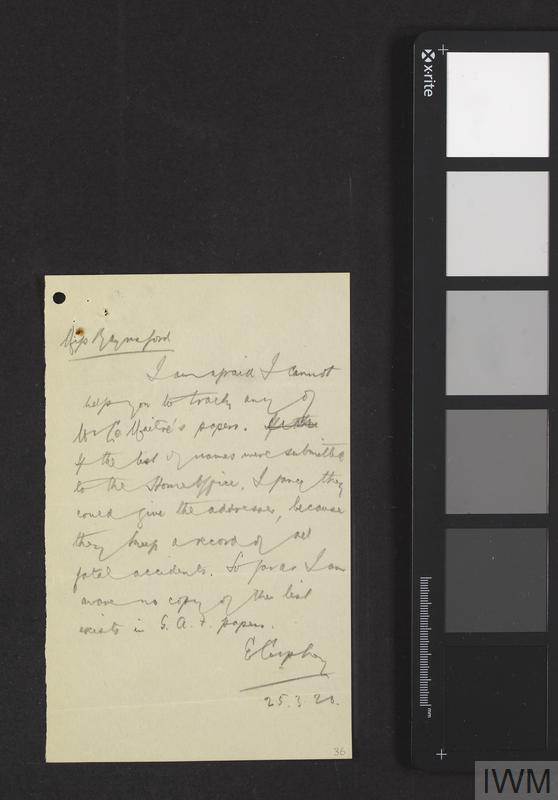 x-rite
Miss Raynsford
I am afraid I cannot
help you to track any of
Mr Le Maitre's papers.
If the list of names were submitted
to the Home Office, I fancy they
could give the addresses, because
they keep a record of all
fatal accidents. So far as I am
aware no copy of the list
exists in S. A. F. papers.
25.3.20.
36
mm
IWM